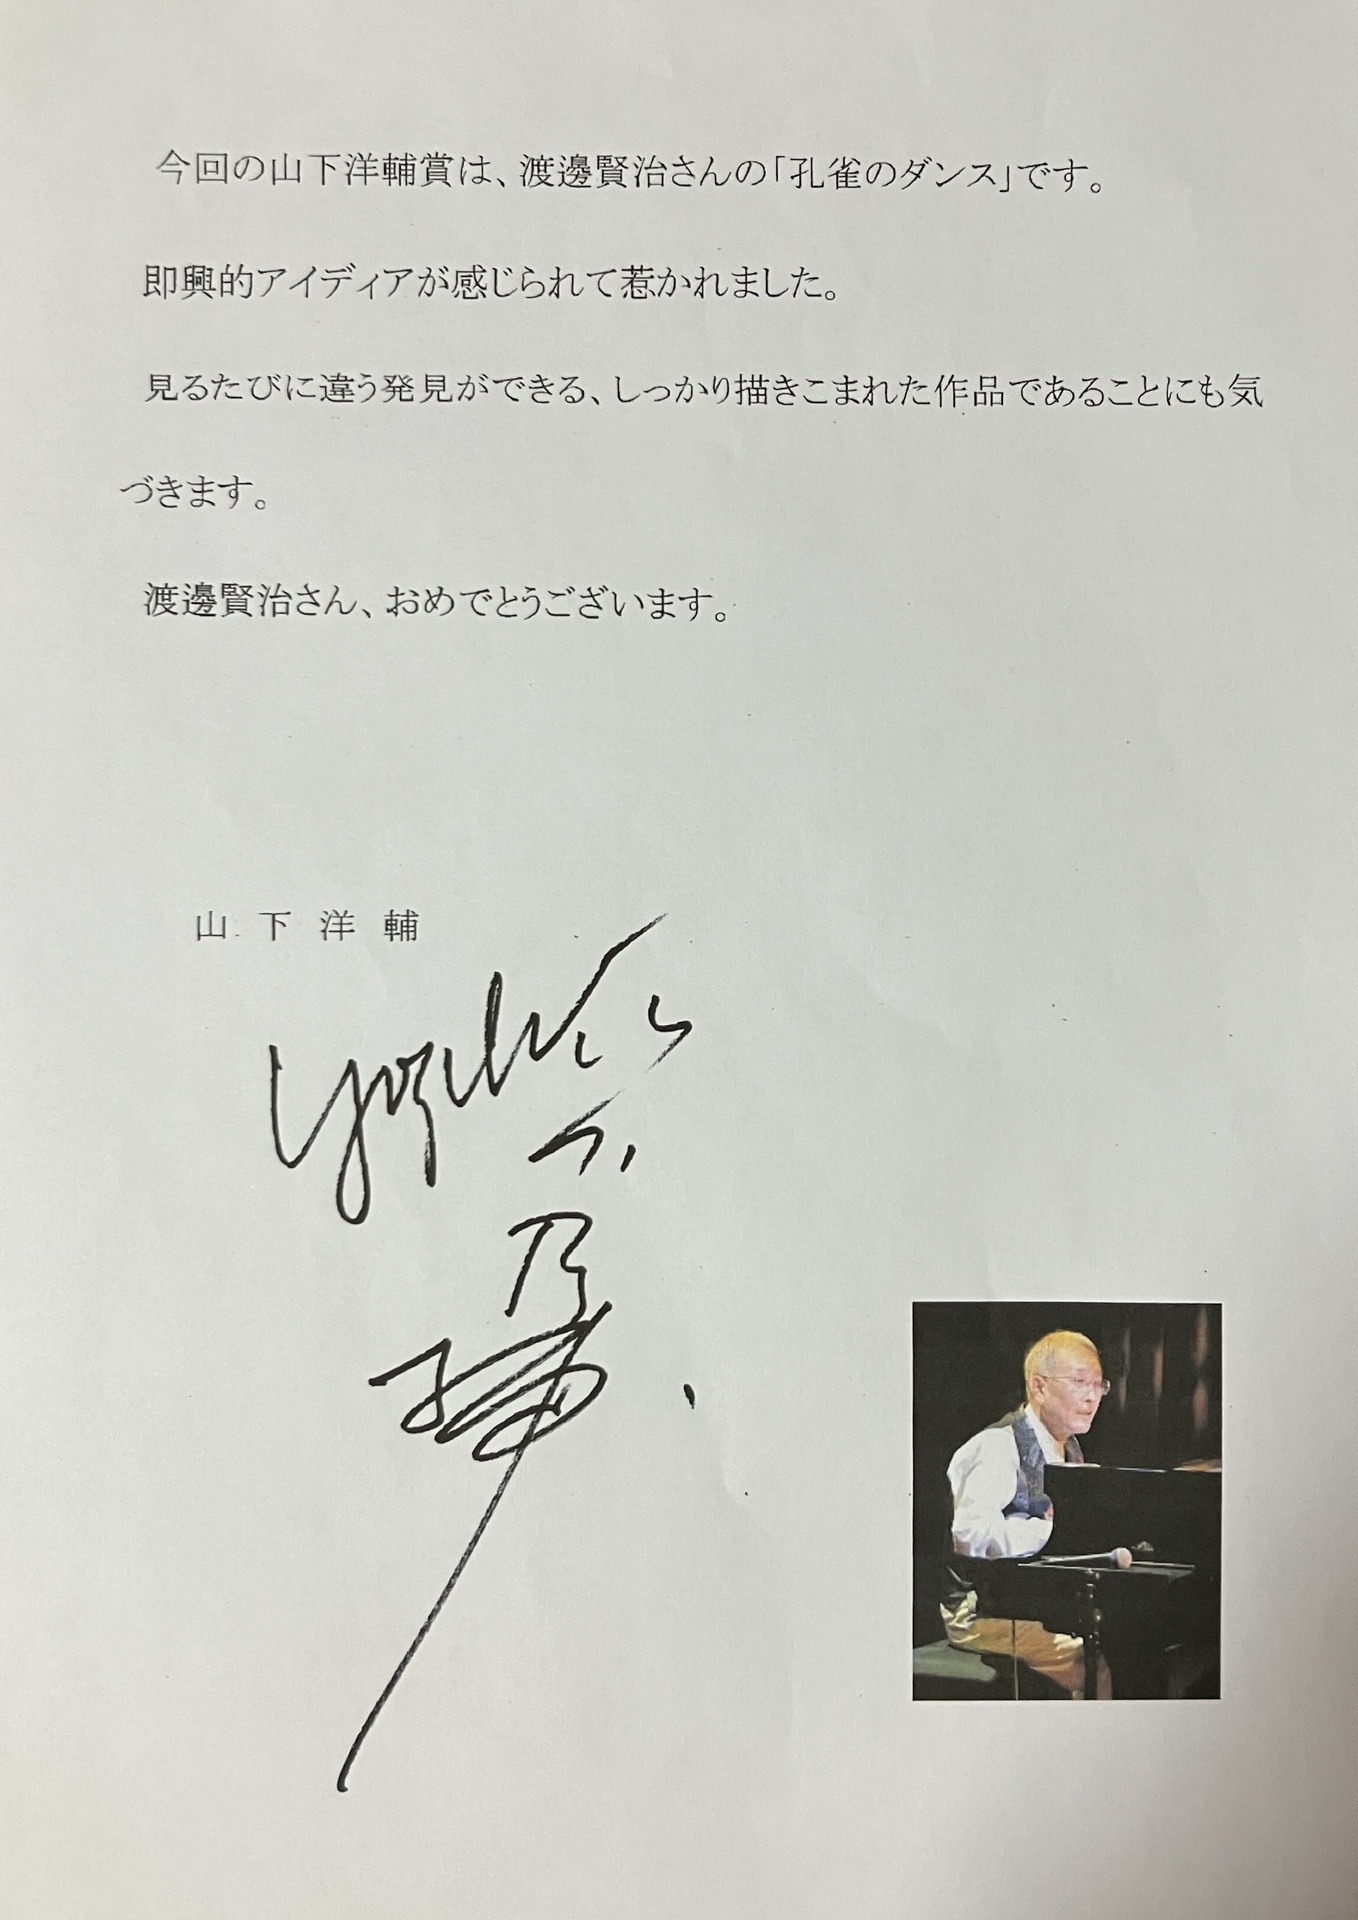 今回の山下洋輔賞は、渡邊賢治さんの「孔雀のダンス」です。
即興的アイディアが感じられて惹かれました。
見るたびに違う発見ができる、しっかり描きこまれた作品であることにも気
づきます。
渡邊賢治さん、おめでとうございます。
山下洋輔